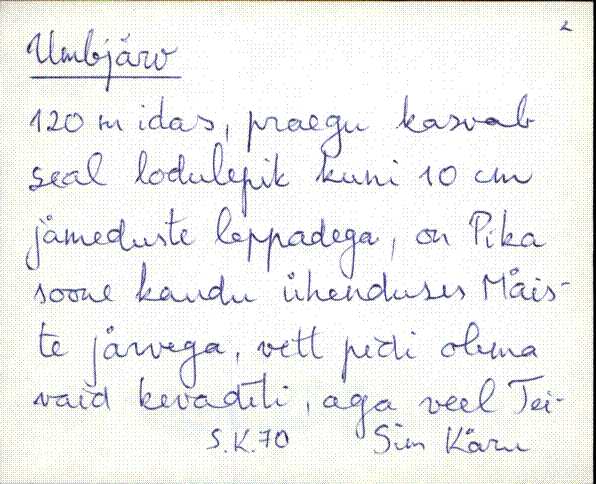 2
Umbjärv
120 m idas, praegu kasvab
seal lodulepik kuni 10 cm
jämeduste leppadega, on Pika
soone kaudu ühenduses Mäis-
te järvega, vett pidi olema
vaid kevaditi, aga veel Tei-
S.K.70 Sim Käru